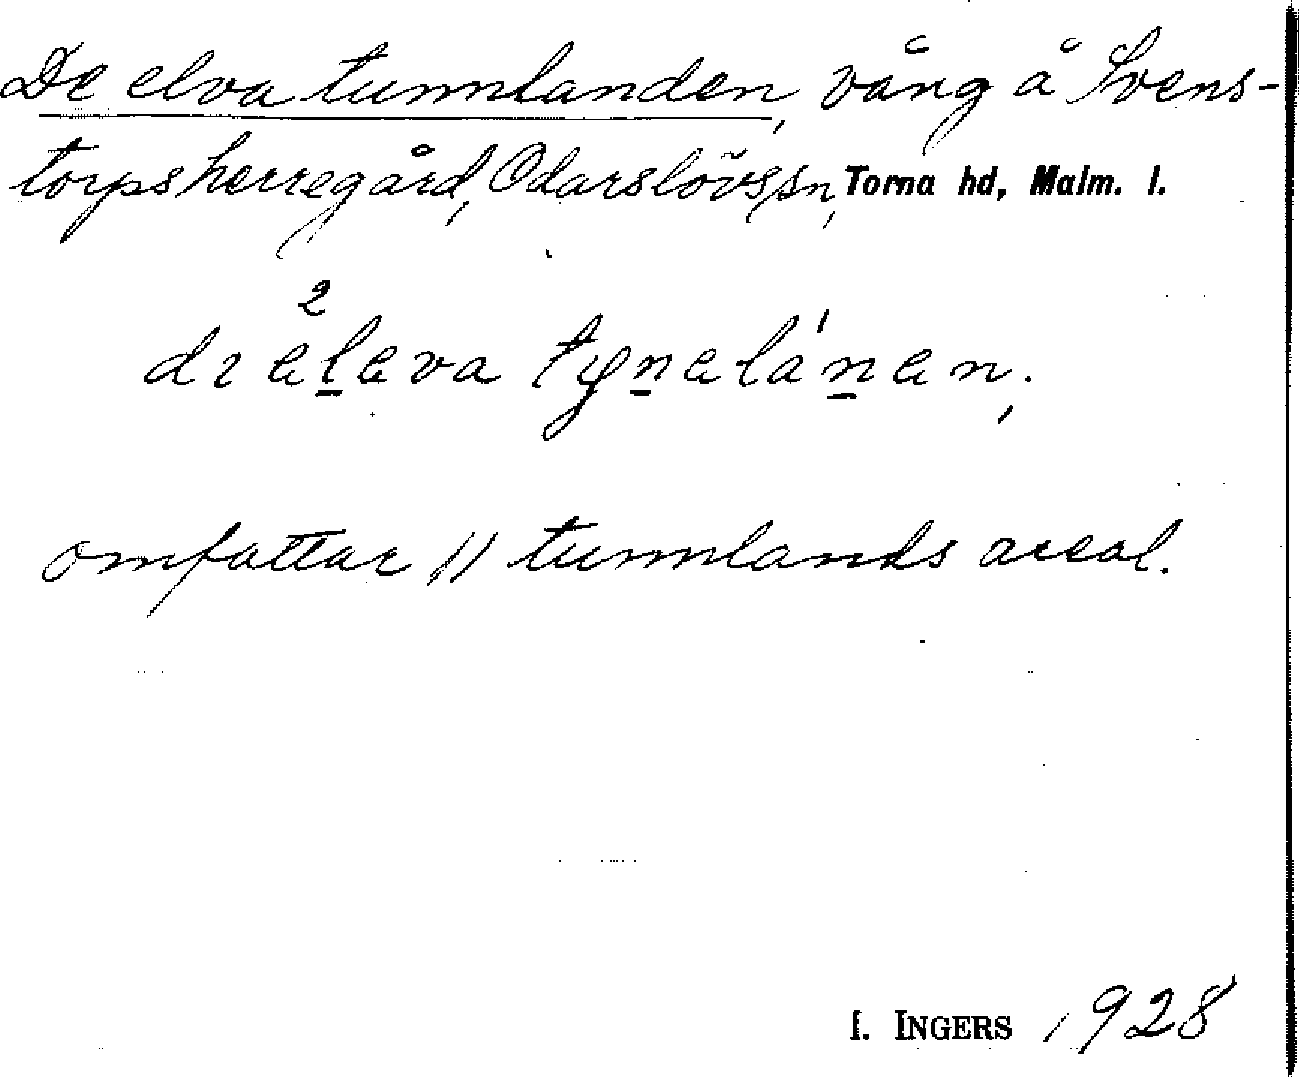 De elva tunnlanden, vång å Svens-
torps herregård, Odarslövs sn, Torna hd, Malm. l.
dı ela²va tynəlánən,
omfattar 11 tunnlands areal.
I. INGERS 1928